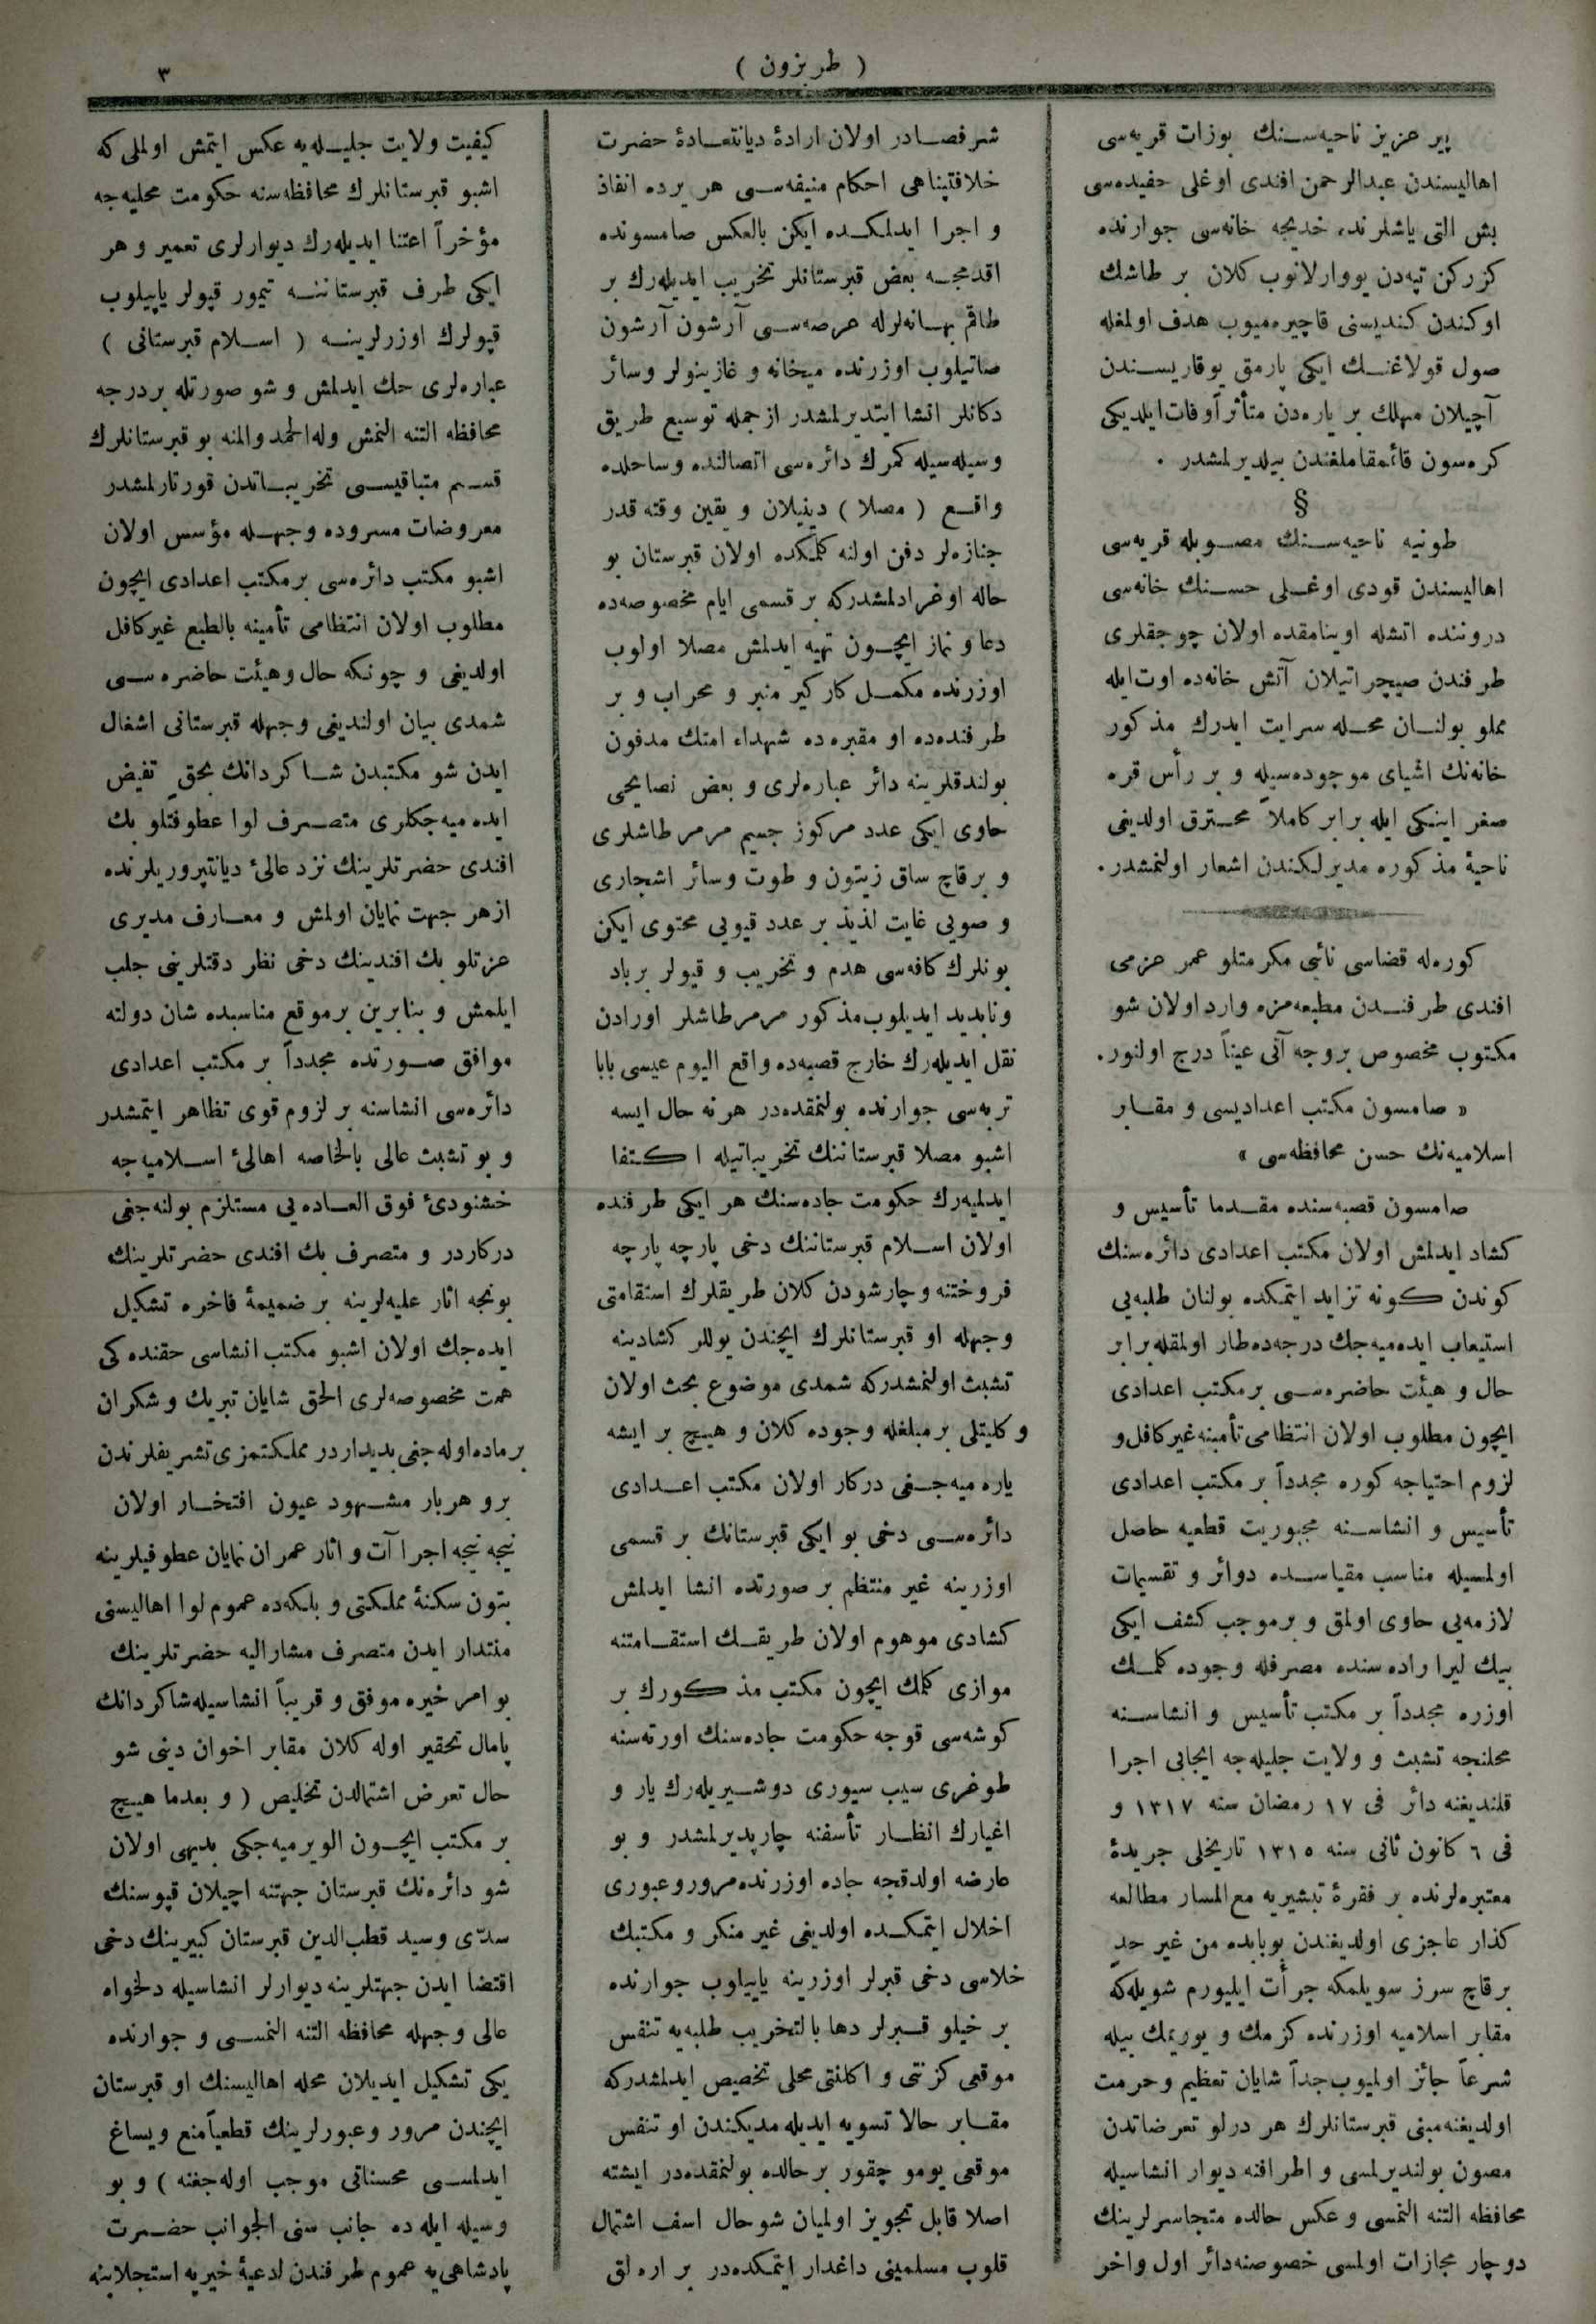 ( طربزون )
٣
پیر عزیز ناحیه‌سنك بوزات قریه‌سی
اهالیسندن عبدالرحمن افندی اوغلی حفیده‌سی
بش التی یاشلرنده خدیجه خانه‌سی جوارنده
کزرکن تپه‌دن یووارلانوب کلان بر طاشك
اوکندن کندیسنی قاچیره‌میوب هدف اولمغله
صول قولاغنك ایکی پارمق یوقاریسندن
آچیلان مهلك بر یاره‌دن متأثراً وفات ایلدیکی
کره‌سون قائمقاملغندن بیلدیرلمشدر .
§
طونیه ناحیه‌سنك مصوبله قریه‌سی
اهالیسندن قودی اوغلی حسنك خانه‌سی
دروننده اتشله اوینامقده اولان چوجقلری
طرفندن صیچراتیلان آتش خانه‌ده اوت ایله
مملو بولنان محله سرایت ایدرك مذکور
خانه‌نك اشیای موجوده‌سیله و بر رأس قره
صغر اینکی ایله برابر کاملاً محترق اولدیغی
ناحیهٔ مذکوره مدیرلکندن اشعار اولنمشدر.
کوره‌له قضاسی نائبی مکرمتلو عمر عزمی
افندی طرفندن مطبعه‌مزه وارد اولان شو
مکتوب مخصوص بروجه آتی عیناً درج اولنور.
« صامسون مکتب اعدادیسی و مقابر
اسلامیه‌نك حسن محافظه‌سی »
صامسون قصبه‌سنده مقدما تأسیس و
کشاد ایدلمش اولان مکتب اعدادی دائره‌سنك
کوندن کونه تزاید ایتمکده بولنان طلبه‌یی
استیعاب ایده‌میه‌جك درجه‌ده طار اولمقله برابر
حال و هیئت حاضره‌سی بر مکتب اعدادی
ایچون مطلوب اولان انتظامی تأمینه غیر کافل و
لزوم احتیاجه کوره مجدداً بر مکتب اعدادی
تأسیس و انشاسنه مجبوریت قطعیه حاصل
اولمسیله مناسب مقیاسده دوائر و تقسیمات
لازمه‌یی حاوی اولمق و برموجب کشف ایکی
بیك لیرا راده‌سنده مصرفله وجوده کلمك
اوزره مجدداً بر مکتب تأسیس و انشاسنه
محلنجه تشبث و ولایت جلیله‌جه ایجابی اجرا
قلندیغنه دائر فی ١٧ رمضان سنه ١٣١٧ و
فی ٦ کانون ثانی سنه ١٣١٥ تاریخلی جریدهٔ
معتبره‌لرنده بر فقرهٔ تبشیریه مع‌المسار مطالعه
کذار عاجزی اولدیغندن بوبابده من غیر حد
برقاچ سرز سویلمکه جرأت ایلیورم شویله‌که
مقابر اسلامیه اوزرنده کزمك و یوریمك بیله
شرعاً جائز اولمیوب جداً شایان تعظیم و حرمت
اولدیغنه مبنی قبرستانلرك هر درلو تعرضاتدن
مصون بولندیرلمسی و اطرافنه دیوار انشاسیله
محافظه التنه النمسی و عکس حالده متجاسرلرینك
دوچار مجازات اولمسی خصوصنه دائر اول واخر
شرفصادر اولان ارادهٔ دیانتعادهٔ حضرت
خلافتپناهی احکام منیفه‌سی هر یرده انفاذ
و اجرا ایدلمکده ایکن بالعکس صامسونده
اقدمجه بعض قبرستانلر تخریب ایدیله‌رك بر
طاقم بهانه‌لرله عرصه‌سی آرشون آرشون
صاتیلوب اوزرنده میخانه و غازینولر وسائر
دکانلر انشا ایتدیرلمشدر ازجمله توسیع طریق
وسیله‌سیله کمرك دائره‌سی اتصالنده وساحلده
واقع ( مصلا ) دینیلان و یقین وقته قدر
جنازه‌لر دفن اولنه کلمکده اولان قبرستان بو
حاله اوغرادلمشدرکه بر قسمی ایام مخصوصه‌ده
دعا و نماز ایچون تهیه ایدلمش مصلا اولوب
اوزرنده مکمل کارکیر منبر و محراب و بر
طرفنده‌ده او مقبره‌ده شهداء امتك مدفون
بولندقلرینه دائر عباره‌لری و بعض نصایحی
حاوی ایکی عدد مرکوز جسیم مرمر طاشلری
و برقاچ ساق زیتون و طوت وسائر اشجاری
و صویی غایت لذیذ بر عدد قیویی محتوی ایکن
بونلرك کافه‌سی هدم و تخریب و قیولر برباد
ونابدید ایدیلوب مذکور مرمر طاشلر اورادن
نقل ایدیله‌رك خارج قصبه‌ده واقع الیوم عیسی بابا
تربه‌سی جوارنده بولنمقده‌در هرنه حال ایسه
اشبو مصلا قبرستاننك تخریباتیله اکتفا
ایدلمیه‌رك حکومت جاده‌سنك هر ایکی طرفنده
اولان اسلام قبرستاننك دخی پارچه پارچه
فروختنه و چارشودن کلان طریقلرك استقامتی
وجهله او قبرستانلرك ایچندن یوللر کشادینه
تشبث اولنمشدرکه شمدی موضوع بحث اولان
و کلیتلی بر مبلغله وجوده کلان و هیچ بر ایشه
یاره‌میه‌جغی درکار اولان مکتب اعدادی
دائره‌سی دخی بو ایکی قبرستانك بر قسمی
اوزرینه غیر منتظم بر صورتده انشا ایدلمش
کشادی موهوم اولان طریقك استقامتنه
موازی کلمك ایچون مکتب مذکورك بر
کوشه‌سی قوجه حکومت جاده‌سنك اورته‌سنه
طوغری سیب سیوری دوشیریله‌رك یار و
اغیارك انظار تأسفنه چارپدیرلمشدر و بو
عارضه اولدقجه جاده اوزرنده مرور و عبوری
اخلال ایتمکده اولدیغی غیر منکر و مکتبك
خلاسی دخی قبرلر اوزرینه یاپیلوب جوارنده
بر خیلو قبرلر دها بالتخریب طلبه‌یه تنفس
موقعی کزنتی و اکلنتی محلی تخصیص ایدلمشدرکه
مقابر حالا تسویه ایدیله‌مدیکندن او تنفس
موقعی یومو چقور بر حالده بولنمقده‌در ایشته
اصلا قابل تجویز اولمیان شو حال اسف اشتمال
قلوب مسلمینی داغدار ایتمکده‌در بر ارەلق
کیفیت ولایت جلیله‌یه عکس ایتمش اولملی که
اشبو قبرستانلرك محافظه‌سنه حکومت محلیه‌جه
مؤخراً اعتنا ایدیله‌رك دیوارلری تعمیر و هر
ایکی طرف قبرستاننه تیمور قپولر یاپیلوب
قپولرك اوزرلرینه ( اسلام قبرستانی )
عباره‌لری حك ایدلمش و شو صورتله بردرجه
محافظه التنه النمش وله‌الحمد والمنه بو قبرستانلرك
قسم متباقیسی تخریباتدن قورتارلمشدر
معروضات مسروده وجهله مؤسس اولان
اشبو مکتب دائره‌سی بر مکتب اعدادی ایچون
مطلوب اولان انتظامی تأمینه بالطبع غیر کافل
اولدیغی و چونکه حال وهیئت حاضره‌سی
شمدی بیان اولندیغی وجهله قبرستانی اشغال
ایدن شو مکتبدن شاکردانك بحق تفیض
ایده‌میه‌جکلری متصرف لوا عطوفتلو بك
افندی حضرتلرینك نزد عالیٔ دیانتپروریلرنده
ازهر جهت نمایان اولمش و معارف مدیری
عزتلو بك افندینك دخی نظر دقتلرینی جلب
ایلمش و بنابرین برموقع مناسبده شان دولته
موافق صورتده مجدداً بر مکتب اعدادی
دائره‌سی انشاسنه بر لزوم قوی تظاهر ایتمشدر
و بو تشبث عالی بالخاصه اهالیٔ اسلامیه‌جه
خشنودیٔ فوق العاده‌یی مستلزم بولنه‌جغی
درکاردر و متصرف بك افندی حضرتلرینك
بونجه اثار علیه‌لرینه بر ضمیمهٔ فاخره تشکیل
ایده‌جك اولان اشبو مکتب انشاسی حقنده‌کی
همت مخصوصه‌لری الحق شایان تبریك وشکران
برماده اوله‌جغی بدیداردر مملکتمزی تشریفلرندن
برو هربار مشهود عیون افتخار اولان
نیجه نیجه اجراآت و اثار عمران نمایان عطوفیلرینه
بتون سکنهٔ مملکتی و بلکه‌ده عموم لوا اهالیسنی
منتدار ایدن متصرف مشارالیه حضرتلرینك
بو امر خیره موفق و قریباً انشاسیله شاکردانك
پامال تحقیر اوله کلان مقابر اخوان دینی شو
حال تعرض اشتمالدن تخلیص ( و بعدما هیچ
بر مکتب ایچون الویرمیه‌جکی بدیهی اولان
شو دائره‌نك قبرستان جهتنه اچیلان قپوسنك
سدّی وسید قطب‌الدین قبرستان کبیرینك دخی
اقتضا ایدن جهتلرینه دیوارلر انشاسیله دلخواه
عالی وجهله محافظه التنه النمسی و جوارنده
یکی تشکیل ایدیلان محله اهالیسنك او قبرستان
ایچندن مرور وعبورلرینك قطعیاً منع ویساغ
ایدلمسی محسناتی موجب اوله‌جغنه ) و بو
وسیله ایله‌ده جانب سنی الجوانب حضرت
پادشاهی‌یه عموم طرفندن لدعیهٔ خیریه استجلابنه